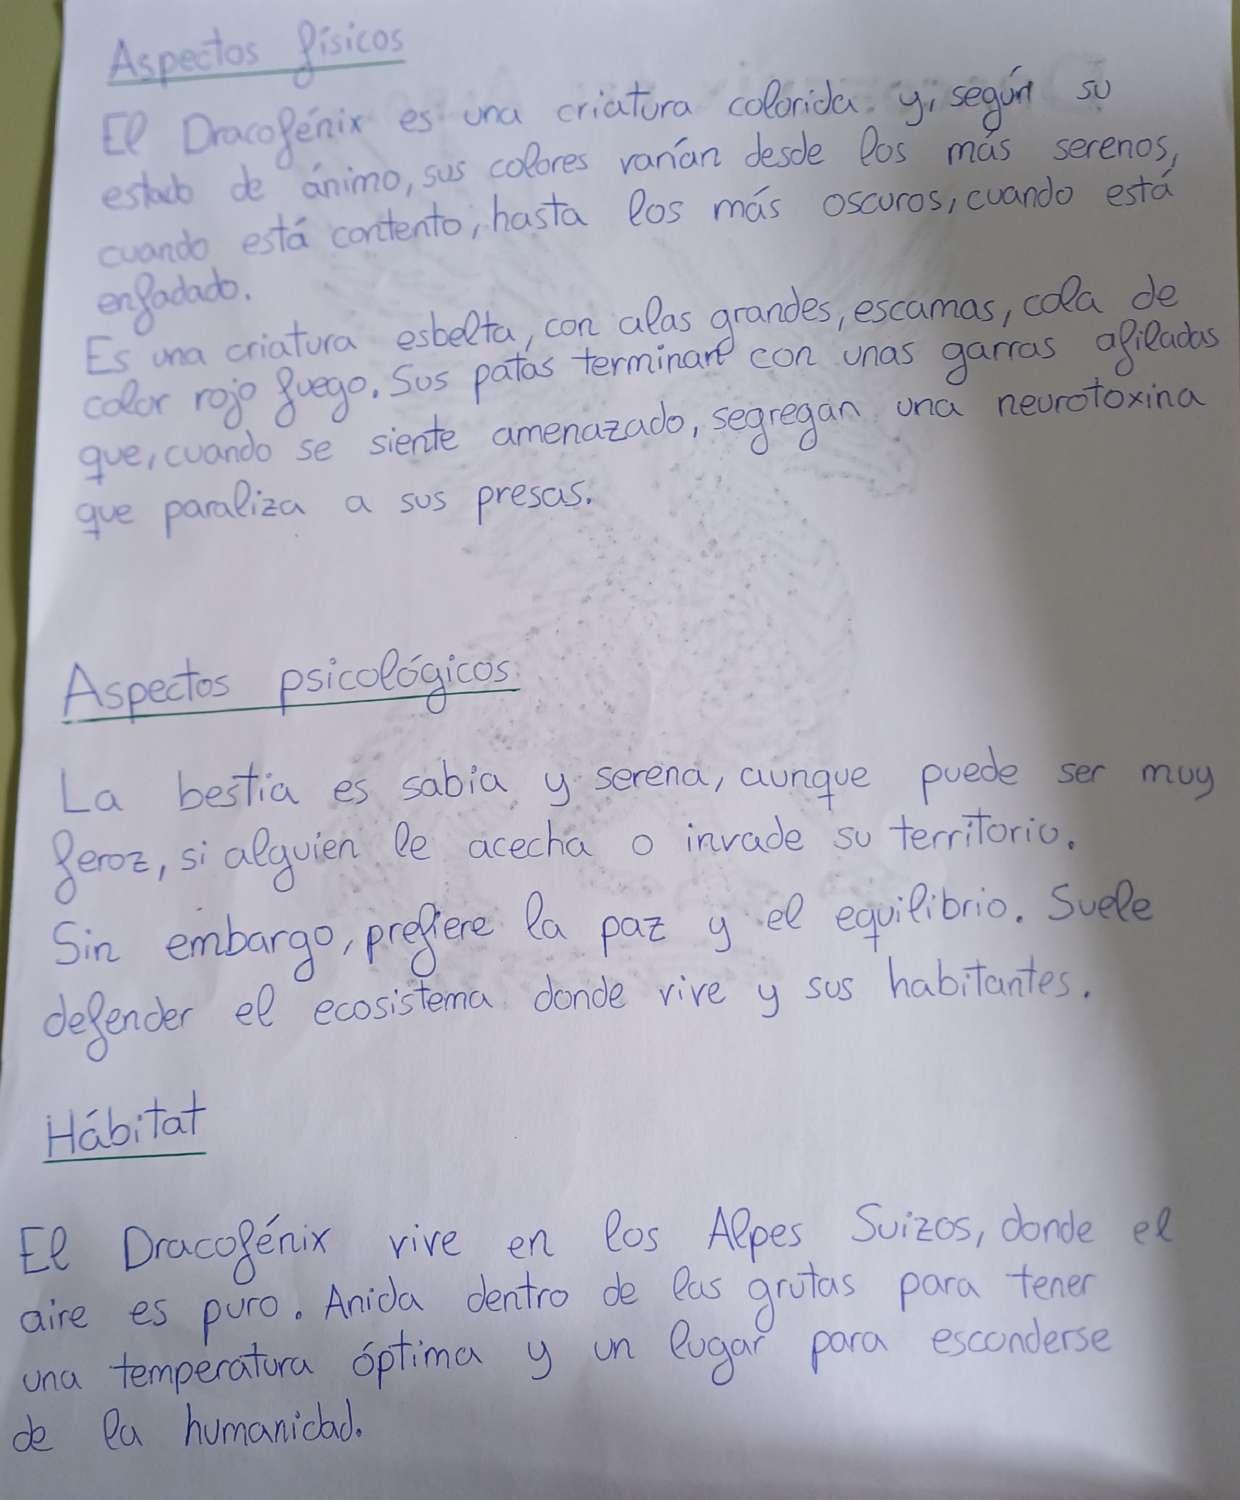 Aspectos físicos
El Dracofénix es una criatura colorida y, según su
estado de ánimo, sus colores varían desde los más serenos,
cuando está contento, hasta los más oscuros, cuando está
enfadado.
Es una criatura esbelta, con alas grandes, escamas, cola de
color rojo fuego. Sus patas terminan con unas garras afiladas
que, cuando se siente amenazado, segregan una neurotoxina
que paraliza a sus presas.
Aspectos psicológicos
La bestia es sabia y serena, aunque puede ser muy
feroz, si alguien le acecha o invade su territorio.
Sin embargo, prefiere la paz y el equilibrio. Suele
defender el ecosistema donde vive y sus habitantes.
Hábitat
El Dracofénix vive en los Alpes Suizos, donde el
aire es puro. Anida dentro de las grutas para tener
una temperatura óptima y un lugar para esconderse
de la humanidad.